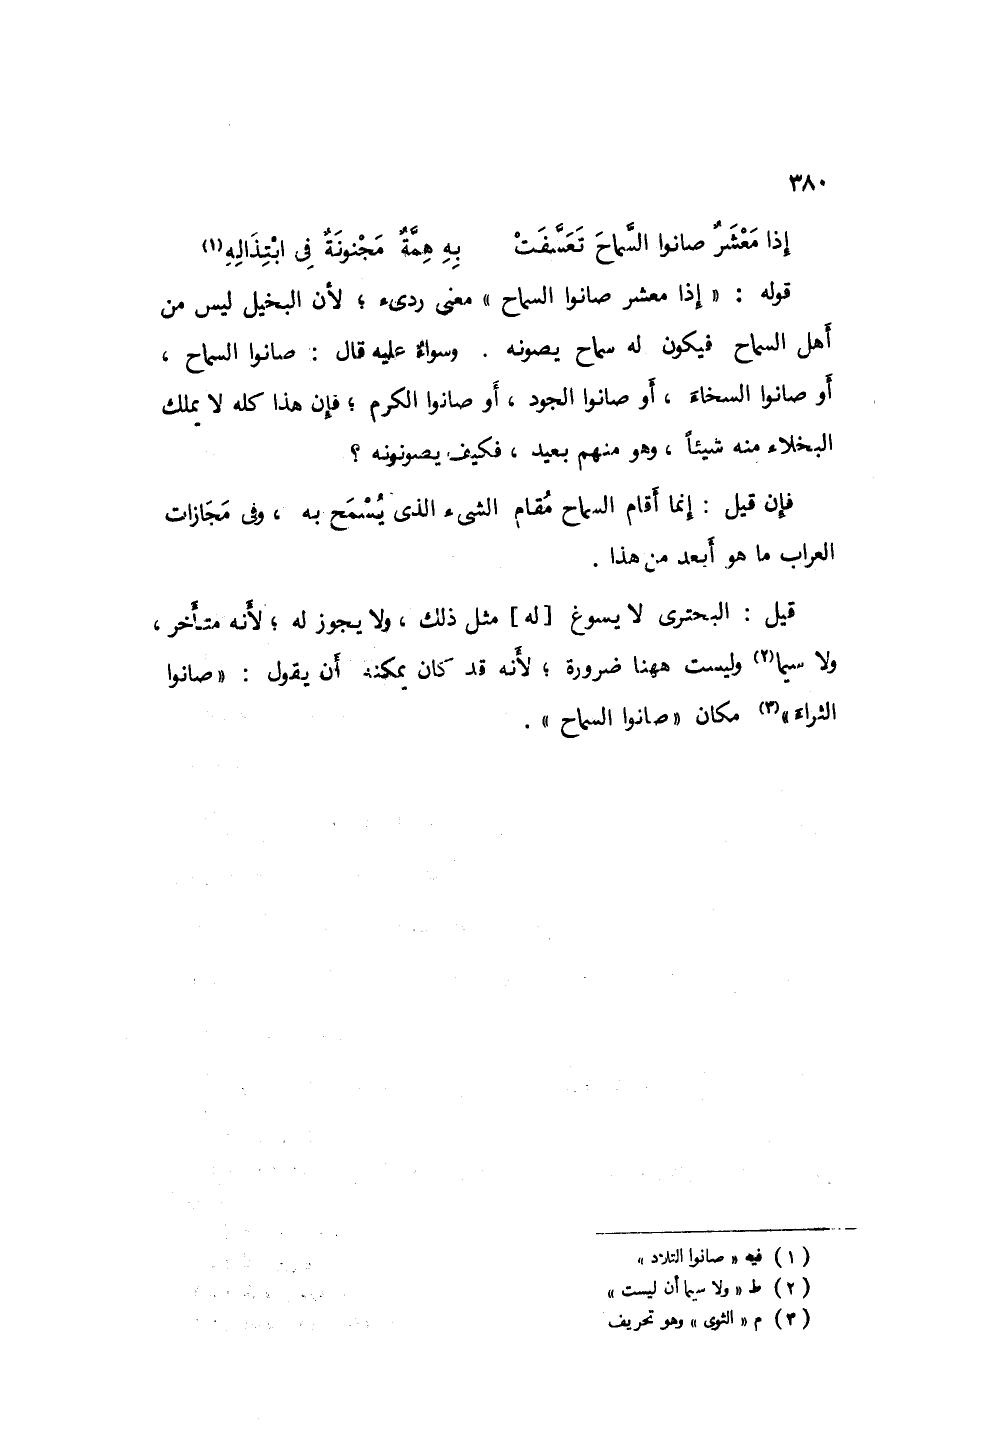 ٣٨٠
إذا مَعْشَرٌ صانوا السَّماحَ تَعَسَّفَتْ بِهِ هِمَّةٌ مَجْنونَةٌ فِى ابْتِذَالِهِ(١)
قوله : « إذا معشر صانوا السماح » معنى ردىء ؛ لأن البخيل ليس من
أهل السماح فيكون له سماح يصونه . وسواءٌ عليه قال : صانوا السماح ،
أو صانوا السخاءَ ، أو صانوا الجود ، أو صانوا الكرم ؛ فإن هذا كله لا يملك
البخلاء منه شيئاً ، وهو منهم بعيد ، فكيف يصونونه ؟
فإن قيل : إنما أقام السماح مُقام الشىء الذى يُسْمَح به ، وفى مَجَازات
العراب ما هو أبعد من هذا .
قيل : البحترى لا يسوغ [ له ] مثل ذلك ، ولا يجوز له ؛ لأنه متأخر ،
ولا سيما(٢) وليست ههنا ضرورة ؛ لأنه قد كان يمكنه أن يقول : « صانوا
الثراءَ »(٣) مكان « صانوا السماح » .
( ١ ) فيه « صانوا التلاد »
( ٢ ) ط « ولا سيما أن ليست »
( ٣ ) م « الثوى » وهو تحريف